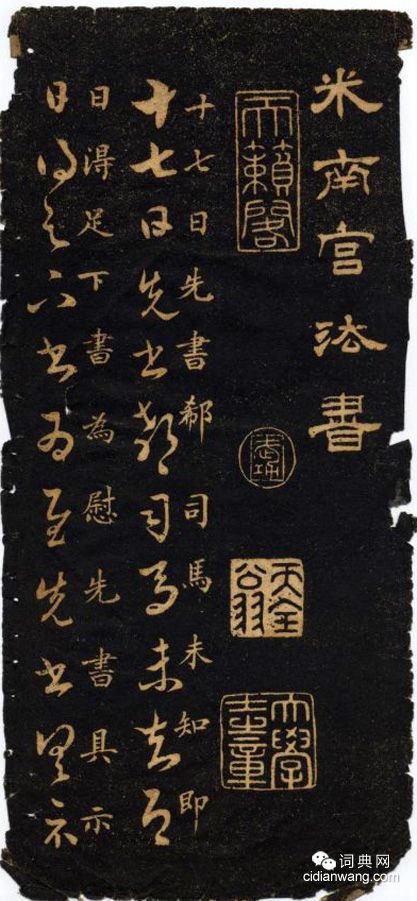 米南宫法書
天籟閣
武功
天全翁
大學士章
十七日先書郗司馬未知即
十七日先書郗司馬未去即
日得足下書為慰先書具示
日得足下書為慰先書具示
词典网
cidianwang.com